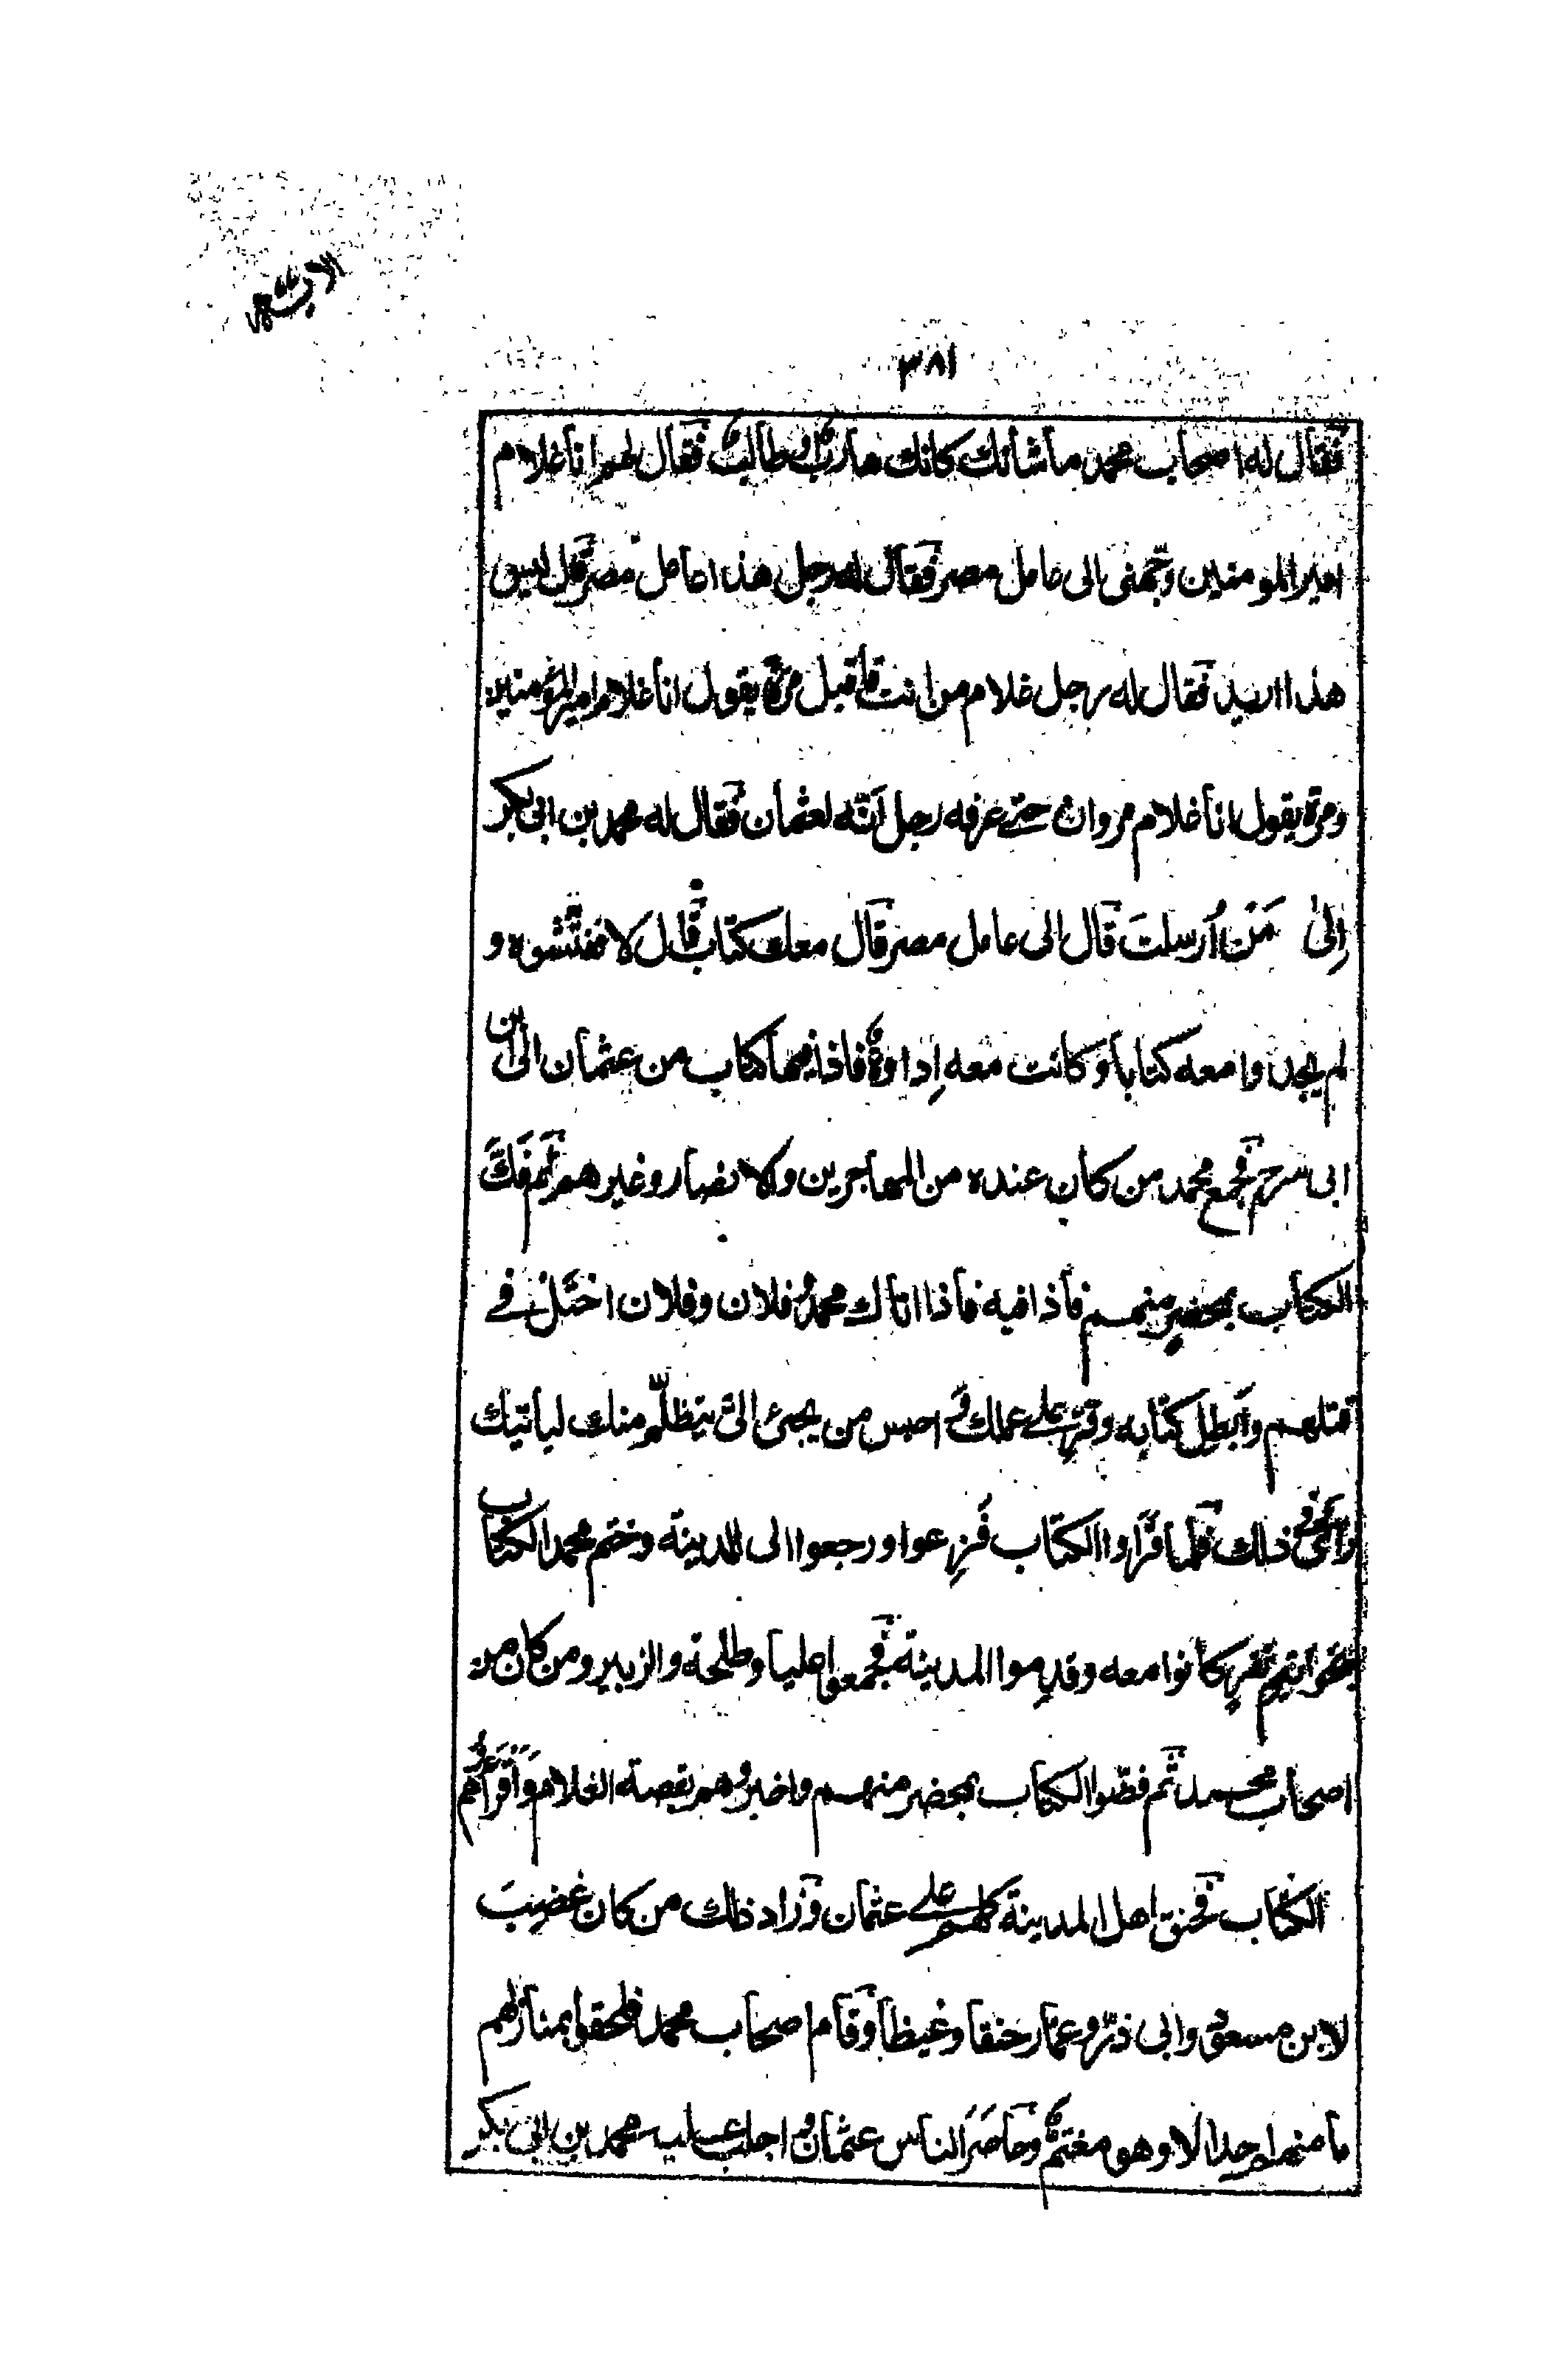 ٣٨١
فقال له اصحاب محمد ما شانك كانك هارب او طالب فقال لهم انا غلام
امير المومنين وجهنى الى عامل مصر فقال له رجل هذا عامل مصر قال ليس
هذا اريد فقال له رجل غلام من انت فاقبل مرة يقول انا غلام امير المؤمنين
ومرة يقول انا غلام مروان حتے عرفه رجل انّه لعثمان فقال له محمد بن ابى بكر
اِلىٰ مَنْ اُرسلتَ قال الى عامل مصر قال معك كتاب قال لا ففتّشوه و
لم يجدوا معه كتابا وكانت معه اِداوةٌ فاذا فيها كتاب من عثمان الى ابن
ابى سرح فجمع محمد من كان عنده من المهاجرين والانصار وغيرهم ثم فكَّ
الكتاب بمحضرٍ منهم فاذا فيه فاذا اتاك محمدٌ وفلان وفلان احتَل فے
قتلهم وأبطل كتابه وقرّ علے عملك و احبس من يجىئ الىَّ يتظلّم منك لياتيك
رائى فى ذلك فلما قرَاوا الكتاب فَزِعوا ورجعوا الى المدينة وختم محمد الكتاب
بخواتيم نفرٍ كانوا معه وقدِموا المدينة فجمعوا عليا وطلحة والزبير ومن كان من
اصحاب محمد ثم فضّوا الكتاب بمحضر منهم واخبروهم بقصة الغلام واَقرَاُوهم
الكتاب فحنق اهل المدينة كلهم علے عثمان وزاد ذلك من كان غضِبَ
لابن مسعود وابى ذرّ وعمّار حنقا وغيظا وقام اصحاب محمد فلحقوا بمنازلهم
ما منهم احد الا وهو مغتمٌّ وحاصَرَ الناس عثمان و اجلب عليه محمد بن ابى بكر